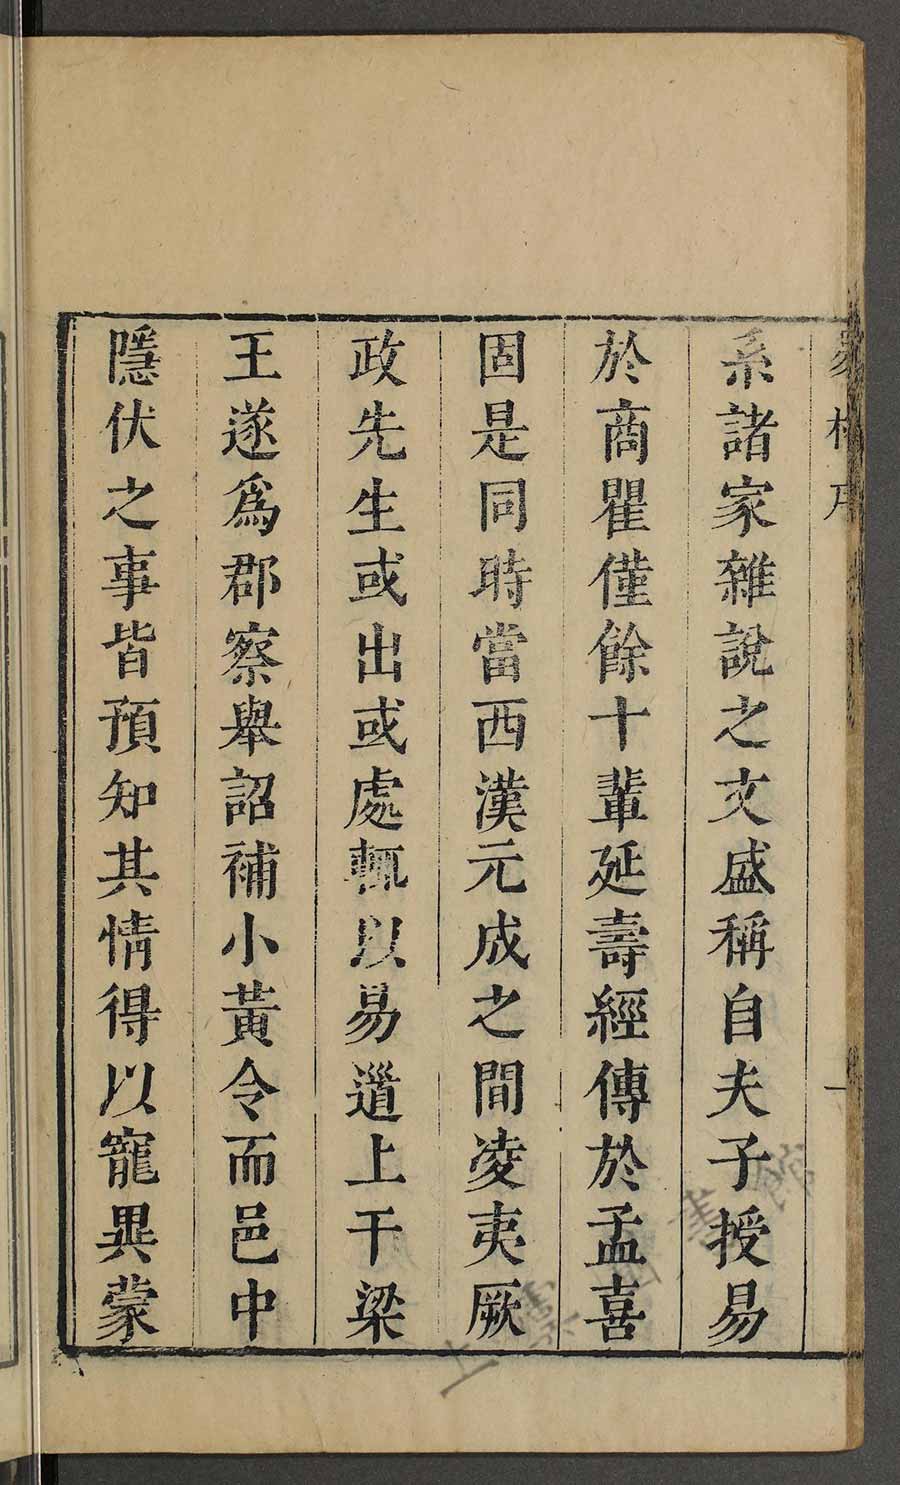 系諸家雜說之文盛稱自夫子授易
於商瞿僅餘十輩延壽經傳於孟喜
固是同時當西漢元成之間凌夷厥
政先生或出或處輒以易道上干梁
王遂爲郡察舉詔補小黃令而邑中
隱伏之事皆預知其情得以寵異蒙